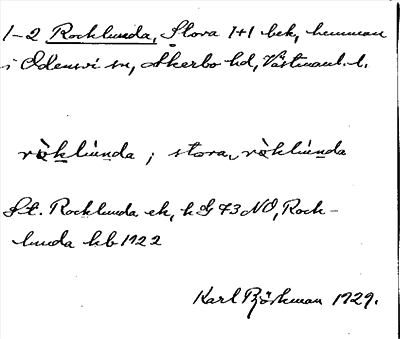 1–2 Rocklunda, Stora 1+1 bek, hemman
i Odensvi sn, Åkerbo hd, Västmanl. l.
ròklúnda ; stora ròklúnda
St. Rocklunda ek, hG 73 NO, Rock-
lunda hb 1922
Karl Björkman 1929.